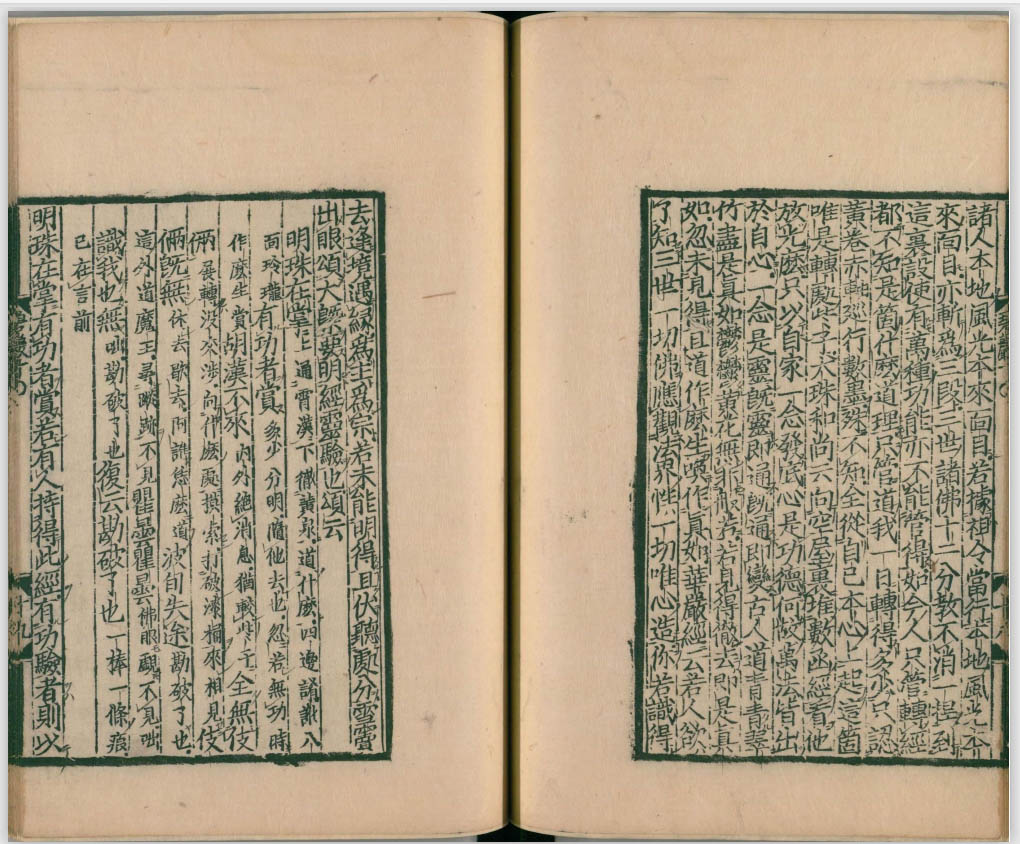 諸人本地風光本來面目若據祖令當行本地風光本
來面目亦斬為三段三世諸佛十二分教不消一捏到
這裏設使有萬種功能亦不能管得如今人只管轉經
都不知是箇什麼道理只管道我一日轉得多少只認
黃卷赤軸巡行數墨殊不知全從自己本心上起這箇
唯是轉處些子大珠和尚云向空屋裏堆數函經看他
放光麼只以自家一念發底心是功德何故萬法皆出
於自心一念是靈既靈即通既通即變古人道青青翠
竹盡是真如鬱鬱黃花無非般若若見得徹去即是真
如忽未見得且道作麼生喚作真如華嚴經云若人欲
了知三世一切佛應觀法界性一切唯心造你若識得
去逢境遇緣為主為宗若未能明得且伏聽處分雪竇
出眼頌大槩要明經靈驗也頌云
明珠在掌上通霄漢下徹黃泉道什麼四邊誵訛八
面玲瓏有功者賞多少分明隨他去也忽若無功時
作麼生賞胡漢不來內外絕消息猶較些子全無伎
倆展轉沒交涉向什麼處摸索打破漆桶來相見伎
倆既無休去歇去阿誰恁麼道波旬失途勘破了也
這外道魔王尋蹤跡不見瞿曇瞿曇佛眼覷不見咄
識我也無咄勘破了也復云勘破了也一棒一條痕
已在言前
明珠在掌有功者賞若有人持得此經有功驗者則以